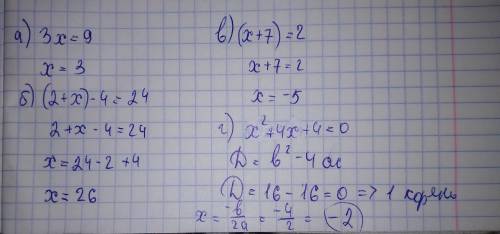 а) 3x = 9
x = 3
б) (2+x)-4 = 24
2+x-4 = 24
x = 24-2+4
x = 26
в) (x+7) = 2
x+7 = 2
x = -5
г) x²+4x+4=0
D = b²-4ac
D = 16-16=0 => 1 корень
x = -b/2a = -4/2 = -2